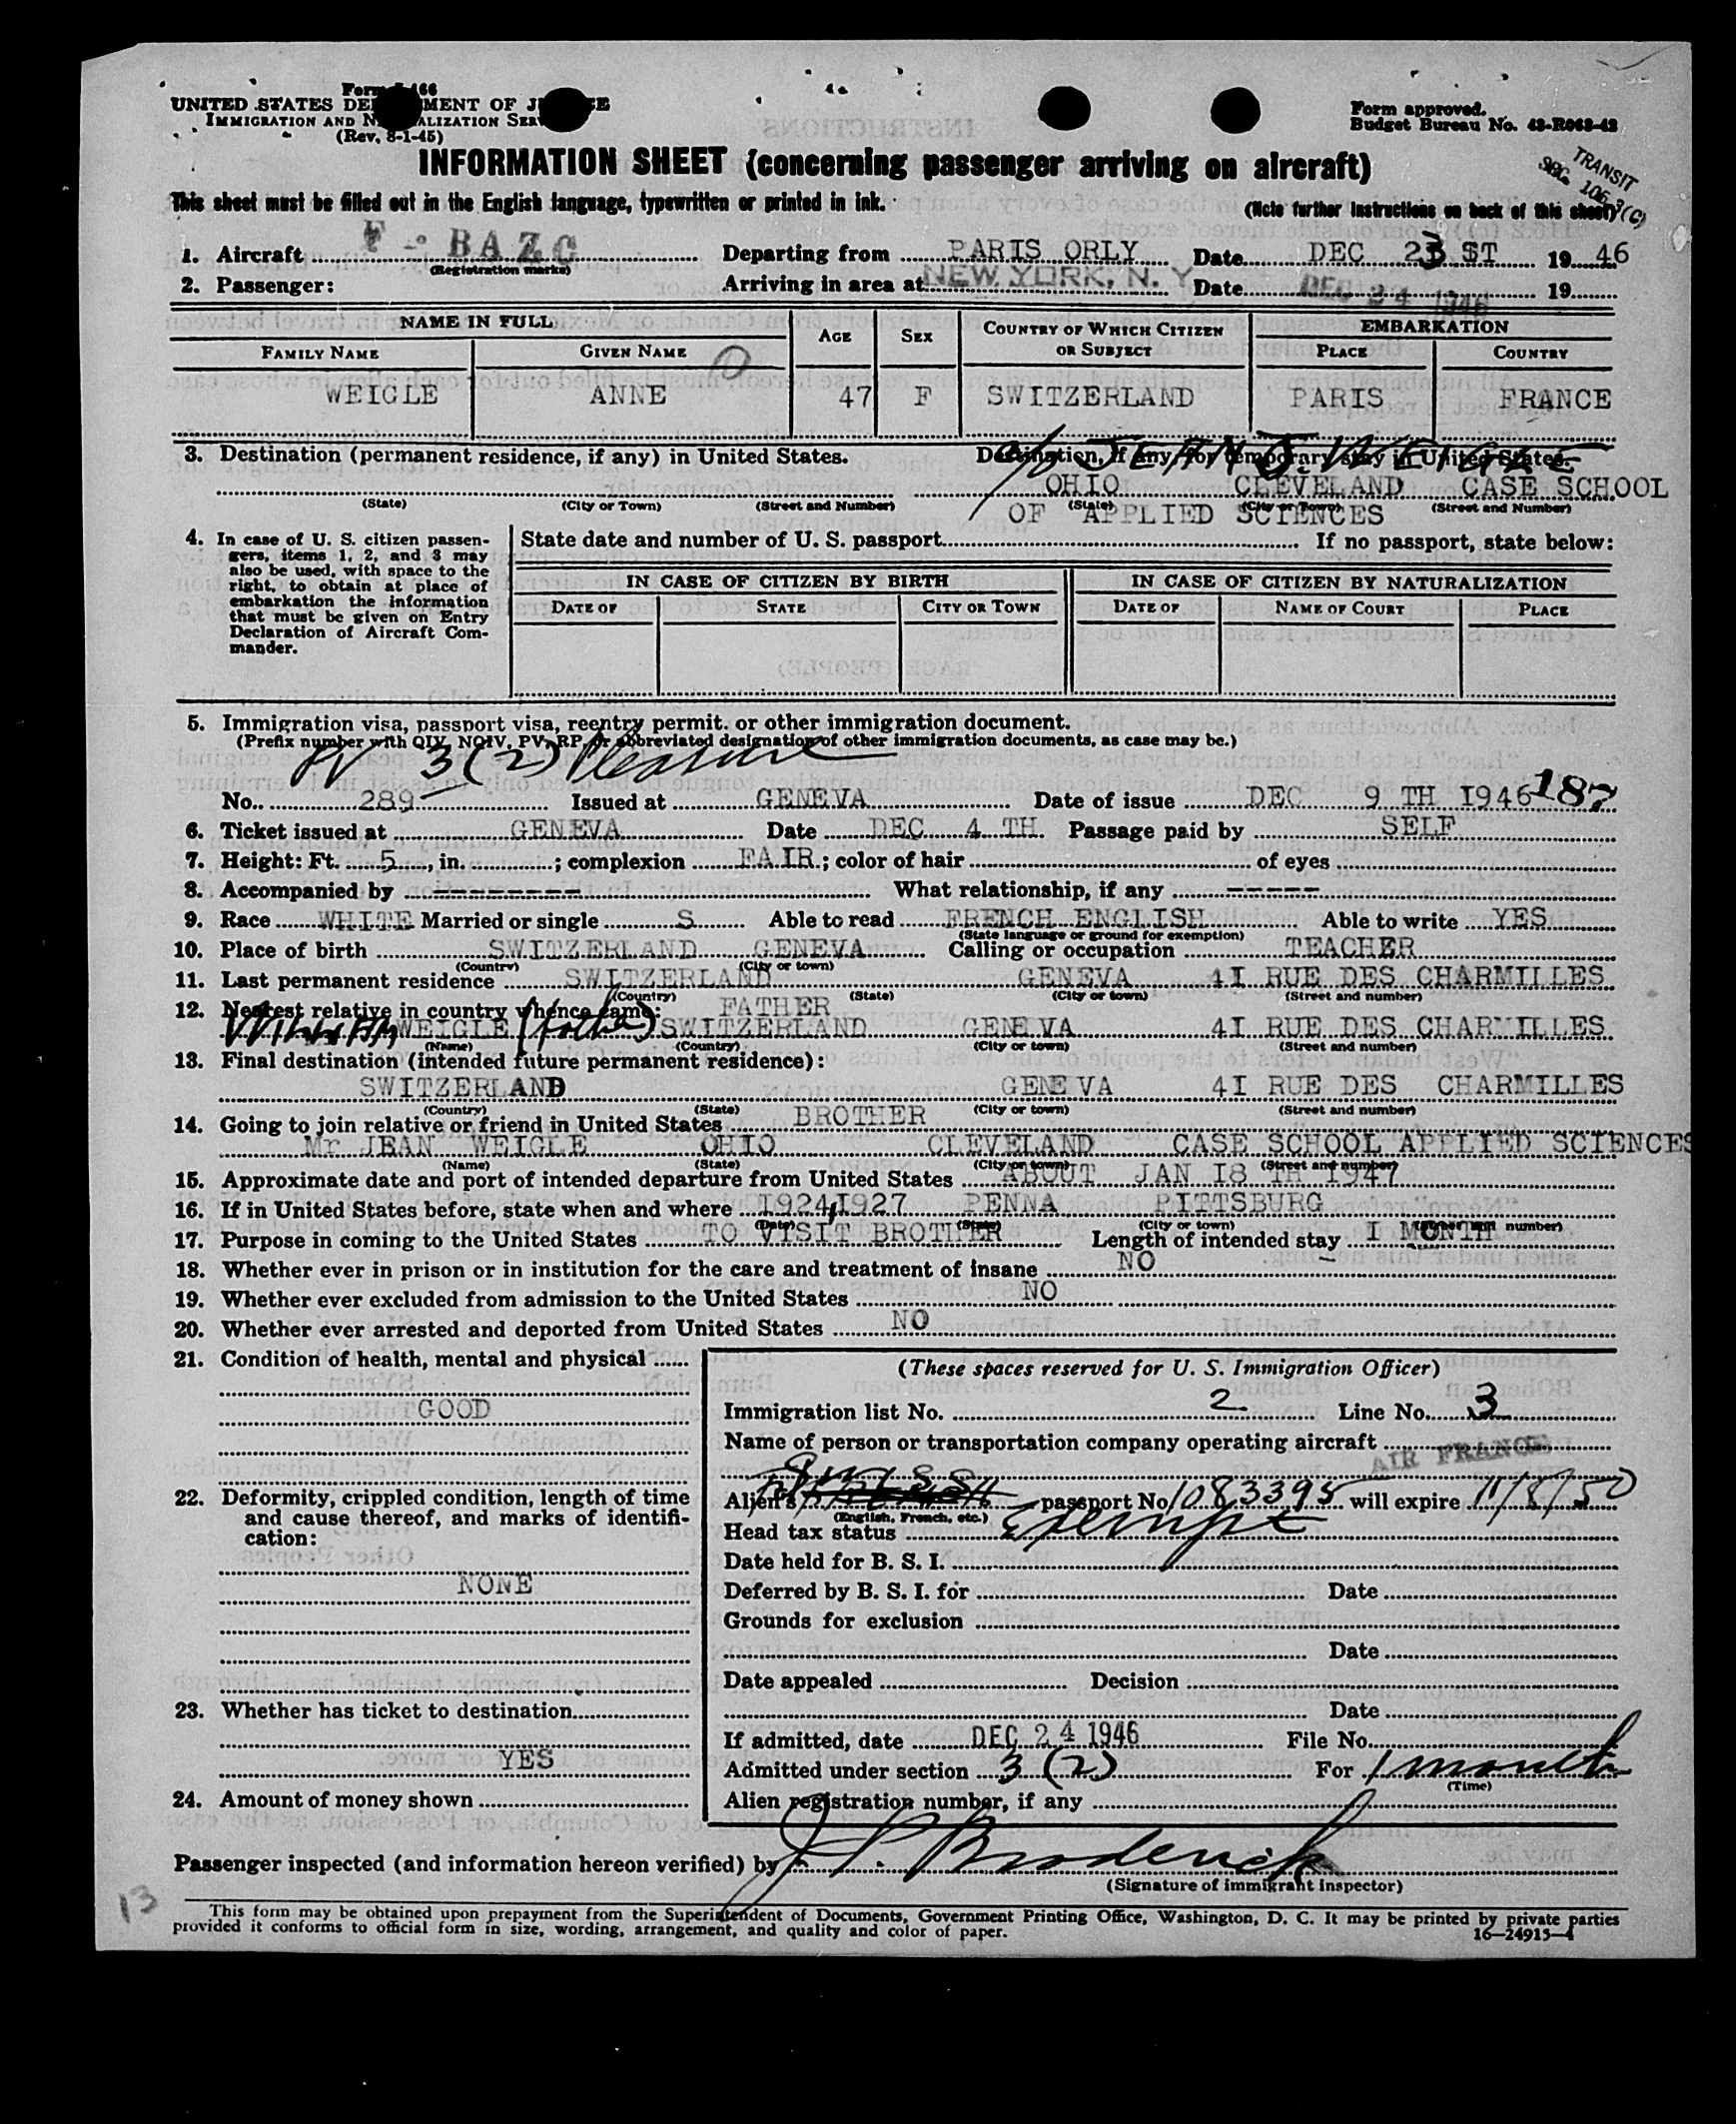 Form I-466
UNITED STATES DEPARTMENT OF JUSTICE
IMMIGRATION AND NATURALIZATION SERVICE
(Rev. 8-1-45)
Form approved.
Budget Bureau No. 43-R063-42
INFORMATION SHEET (concerning passenger arriving on aircraft)
TRANSIT
SEC. 106.3(C)
This sheet must be filled out in the English language, typewritten or printed in ink.
(Note further instructions on back of this sheet)
1. Aircraft F - BAZC Departing from PARIS ORLY Date DEC 23 ST 1946
(Registration marks)
2. Passenger: Arriving in area at NEW YORK, N. Y. Date DEC 24 1946 19
NAME IN FULL AGE SEX COUNTRY OF WHICH CITIZEN OR SUBJECT EMBARKATION
FAMILY NAME GIVEN NAME PLACE COUNTRY
WEIGLE ANNE 47 F SWITZERLAND PARIS FRANCE
3. Destination (permanent residence, if any) in United States. Destination, if any, for temporary stay in United States.
c/o JEAN J. WEIGLE
OHIO CLEVELAND CASE SCHOOL
(State) (City or Town) (Street and Number) (State) (City or Town) (Street and Number)
OF APPLIED SCIENCES
4. In case of U. S. citizen passengers, items 1, 2, and 3 may also be used, with space to the right, to obtain at place of embarkation the information that must be given on Entry Declaration of Aircraft Commander.
State date and number of U. S. passport If no passport, state below:
IN CASE OF CITIZEN BY BIRTH IN CASE OF CITIZEN BY NATURALIZATION
DATE OF STATE CITY OR TOWN DATE OF NAME OF COURT PLACE
5. Immigration visa, passport visa, reentry permit, or other immigration document.
(Prefix number with QIV, NQIV, PV, RP, or abbreviated designation of other immigration documents, as case may be.)
PV 3(2) Pleasure
No. 289 Issued at GENEVA Date of issue DEC 9 TH 1946 187
6. Ticket issued at GENEVA Date DEC 4 TH Passage paid by SELF
7. Height: Ft. 5, in. ; complexion FAIR; color of hair of eyes
8. Accompanied by -------- What relationship, if any -----
9. Race WHITE Married or single S Able to read FRENCH ENGLISH Able to write YES
(State language or ground for exemption)
10. Place of birth SWITZERLAND GENEVA Calling or occupation TEACHER
(Country) (City or town)
11. Last permanent residence SWITZERLAND GENEVA 4I RUE DES CHARMILLES
(Country) (State) (City or town) (Street and number)
12. Nearest relative in country whence came: FATHER
William WEIGLE (father) SWITZERLAND GENEVA 4I RUE DES CHARMILLES
(Name) (Country) (City or town) (Street and number)
13. Final destination (intended future permanent residence):
SWITZERLAND GENEVA 4I RUE DES CHARMILLES
(Country) (State) (City or town) (Street and number)
14. Going to join relative or friend in United States BROTHER
Mr JEAN WEIGLE OHIO CLEVELAND CASE SCHOOL APPLIED SCIENCES
(Name) (State) (City or town) (Street and number)
15. Approximate date and port of intended departure from United States ABOUT JAN I8 TH 1947
16. If in United States before, state when and where I924,I927 PENNA PITTSBURG
(Date) (State) (City or town) (Street and number)
17. Purpose in coming to the United States TO VISIT BROTHER Length of intended stay I MONTH
18. Whether ever in prison or in institution for the care and treatment of insane NO
19. Whether ever excluded from admission to the United States NO
20. Whether ever arrested and deported from United States NO
21. Condition of health, mental and physical
GOOD
22. Deformity, crippled condition, length of time and cause thereof, and marks of identification:
NONE
23. Whether has ticket to destination
YES
24. Amount of money shown
(These spaces reserved for U. S. Immigration Officer)
Immigration list No. 2 Line No. 3
Name of person or transportation company operating aircraft
AIR FRANCE
Swiss
Alien's passport No 1083395 will expire 11/8/50
(English, French, etc.)
Head tax status Exempt
Date held for B. S. I.
Deferred by B. S. I. for Date
Grounds for exclusion
Date
Date appealed Decision
Date
If admitted, date DEC 24 1946 File No.
Admitted under section 3 (2) For 1 month
(Time)
Alien registration number, if any
Passenger inspected (and information hereon verified) by J Broderick
(Signature of immigrant inspector)
13
This form may be obtained upon prepayment from the Superintendent of Documents, Government Printing Office, Washington, D. C. It may be printed by private parties
provided it conforms to official form in size, wording, arrangement, and quality and color of paper.
16—24915-4